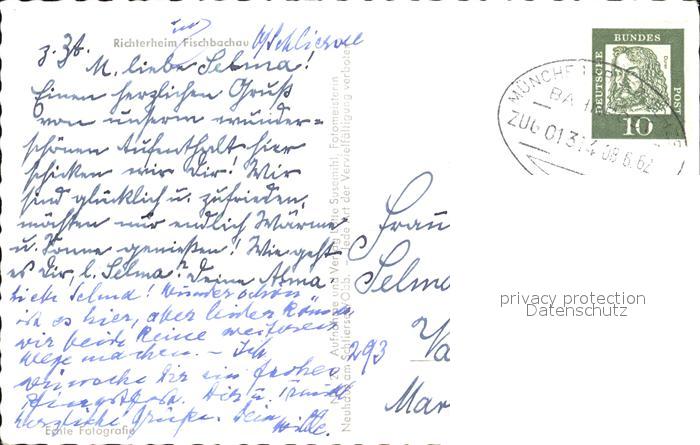 Richterheim Fischbachau b/Schliersee
z. Zt.
M. liebe Selma!
Einen herzlichen Gruß
von unserem wunder-
schönen Aufenthalt hier
schicken wir Dir! Wir
sind glücklich u. zufrieden,
möchten nur endlich Wärme
u. Sonne genießen! Wie geht
es Dir, l. Selma? Deine Alma
Liebe Selma! Wunderschön
ist es hier, aber leider können
wir beide keine weiteren
Wege machen. – Ich
wünsche Dir ein frohes
Pfingstfest. Dir u.
herzliche Grüße. Dein
Willi.
Echte Fotografie
Aufnahme und Verlag Lotte Susemihl, Fotomeisterin
Neuhaus am Schliersee/Obb. – Jede Art der Vervielfältigung verboten
DEUTSCHE BUNDESPOST
Dürer
10
MÜNCHEN
BA
ZUG 01314 08.6.62
Frau
Selma
293
Mar
privacy protection
Datenschutz